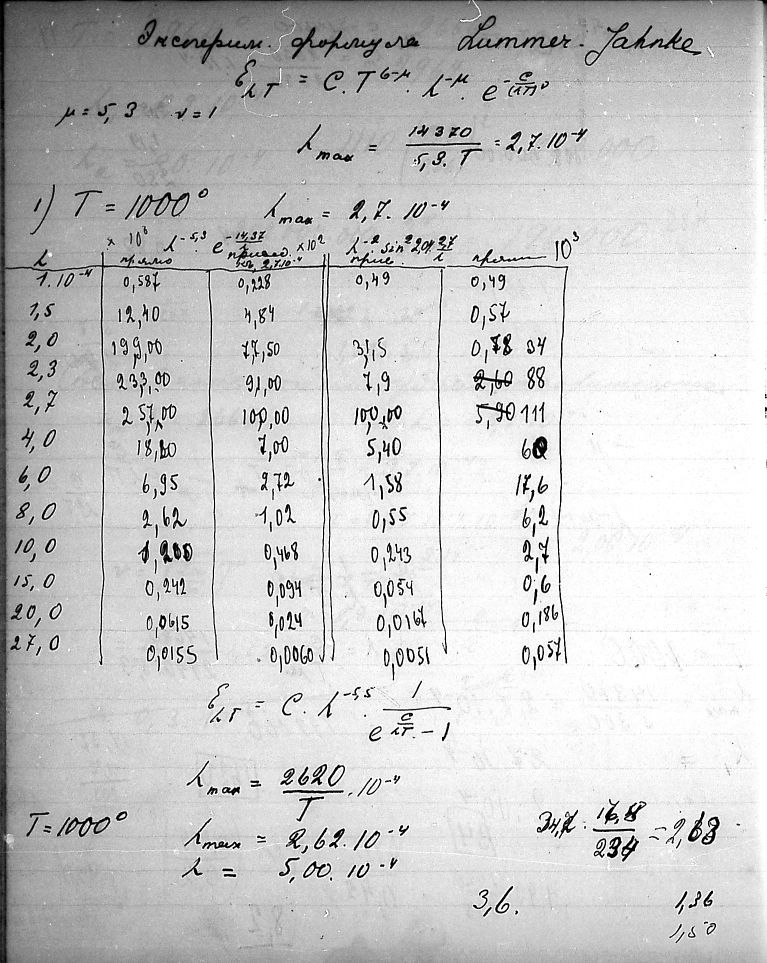 Эксперим. формула Lummer-Jahnke
ε λT = C. T^5-μ. λ^-μ. e^-c/(λT)^ν
μ = 5,3 ν = 1
λ max = 14370 / 5,3. T = 2,7. 10^-4
1) T = 1000° λ max = 2,7. 10^-4
λ × 10^8 λ^-5,3 e^-14,37/λ × 10^2 λ^-2 sin^2 10^3
прямо привед. к 2,7.10^-4 прив. прямо
1. 10^-4 0,587 0,228 0,49 0,49
1,5 12,40 4,84 0,57
2,0 199,00 77,50 31,5 0,78 34
2,3 233,00 91,00 7,9 2,60 88
2,7 257,00 100,00 100,00 5,90 111
4,0 18,20 7,00 5,40 60
6,0 6,95 2,72 1,58 17,6
8,0 2,62 1,02 0,55 6,2
10,0 1,200 0,468 0,243 2,7
15,0 0,242 0,094 0,054 0,6
20,0 0,0615 0,024 0,0167 0,186
27,0 0,0155 0,0060 0,0051 0,057
ε λT = C. λ^-5,5. 1 / e^c/λT - 1
λ max = 2620 / T . 10^-4
T = 1000° λ max = 2,62. 10^-4
λ = 5,00. 10^-4
34,2 . 17,8 / 234 = 2,63
3,6. 1,36
1,50